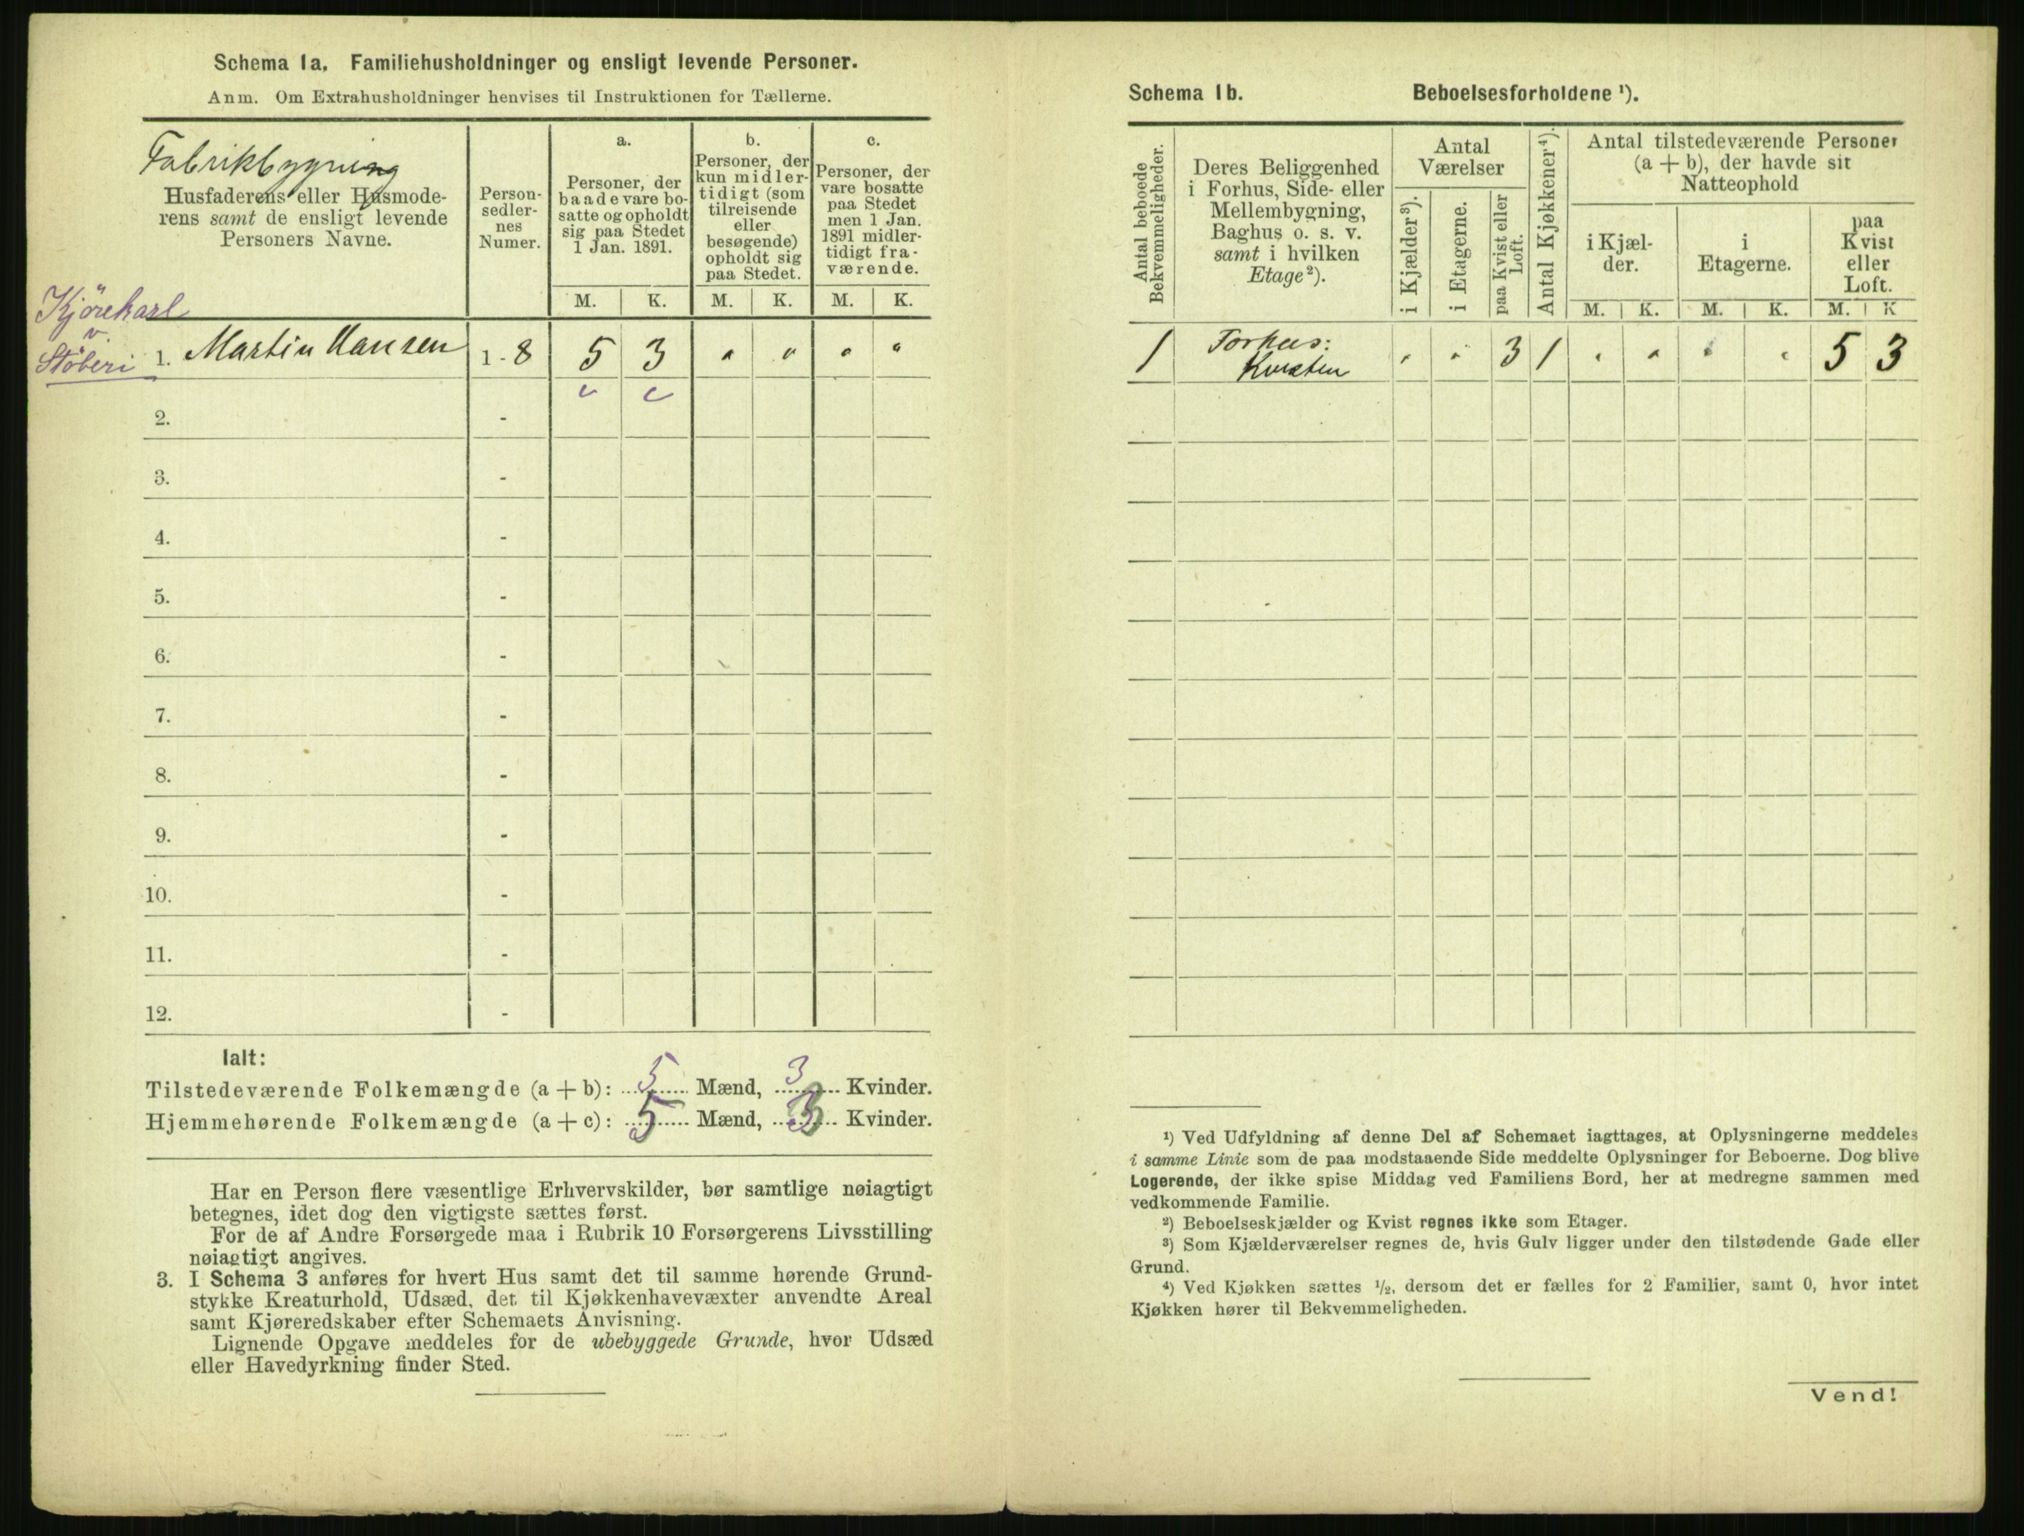 Schema 1a. Familiehusholdninger og ensligt levende Personer.
Anm. Om Extrahusholdninger henvises til Instruktionen for Tællerne.
Fabrikbygning
Husfaderens eller Husmode-
rens samt de ensligt levende
Personers Navne.
Person-
sedler-
nes
Numer.
a.
Personer, der
baade vare bo-
satte og opholdt
sig paa Stedet
1 Jan. 1891.
b.
Personer, der
kun midler-
tidigt (som
tilreisende
eller
besøgende)
opholdt sig
paa Stedet.
c.
Personer, der
vare bosatte
paa Stedet
men 1 Jan.
1891 midler-
tidigt fra-
værende.
M. K. M. K. M. K.
Kjørekarl
v.
Støberi
1. Martin Hansen 1 - 8 5 3 " " " "
2. -
3. -
4. -
5. -
6. -
7. -
8. -
9. -
10. -
11. -
12. -
Ialt:
Tilstedeværende Folkemængde (a + b): 5 Mænd, 3 Kvinder.
Hjemmehørende Folkemængde (a + c): 5 Mænd, 3 Kvinder.
Har en Person flere væsentlige Erhvervskilder, bør samtlige nøiagtigt
betegnes, idet dog den vigtigste sættes først.
For de af Andre Forsørgede maa i Rubrik 10 Forsørgerens Livsstilling
nøiagtigt angives.
3. I Schema 3 anføres for hvert Hus samt det til samme hørende Grund-
stykke Kreaturhold, Udsæd, det til Kjøkkenhavevæxter anvendte Areal
samt Kjøreredskaber efter Schemaets Anvisning.
Lignende Opgave meddeles for de ubebyggede Grunde, hvor Udsæd
eller Havedyrkning finder Sted.
Schema 1b. Beboelsesforholdene ¹).
Antal beboede
Bekvemmeligheder.
Deres Beliggenhed
i Forhus, Side- eller
Mellembygning,
Baghus o. s. v.
samt i hvilken
Etage²).
Antal
Værelser
i Kjælder³).
i Etagerne.
paa Kvist eller
Loft.
Antal Kjøkkener⁴).
Antal tilstedeværende Personer
(a + b), der havde sit
Natteophold
i Kjæl-
der.
i
Etagerne.
paa
Kvist
eller
Loft.
M. K. M. K. M. K
1 Forhus: " " 3 1 " " " " 5 3
Kvisten
¹) Ved Udfyldning af denne Del af Schemaet iagttages, at Oplysningerne meddeles
i samme Linie som de paa modstaaende Side meddelte Oplysninger for Beboerne. Dog blive
Logerende, der ikke spise Middag ved Familiens Bord, her at medregne sammen med
vedkommende Familie.
²) Beboelseskjælder og Kvist regnes ikke som Etager.
³) Som Kjælderværelser regnes de, hvis Gulv ligger under den tilstødende Gade eller
Grund.
⁴) Ved Kjøkken sættes ½, dersom det er fælles for 2 Familier, samt 0, hvor intet
Kjøkken hører til Bekvemmeligheden.
Vend!